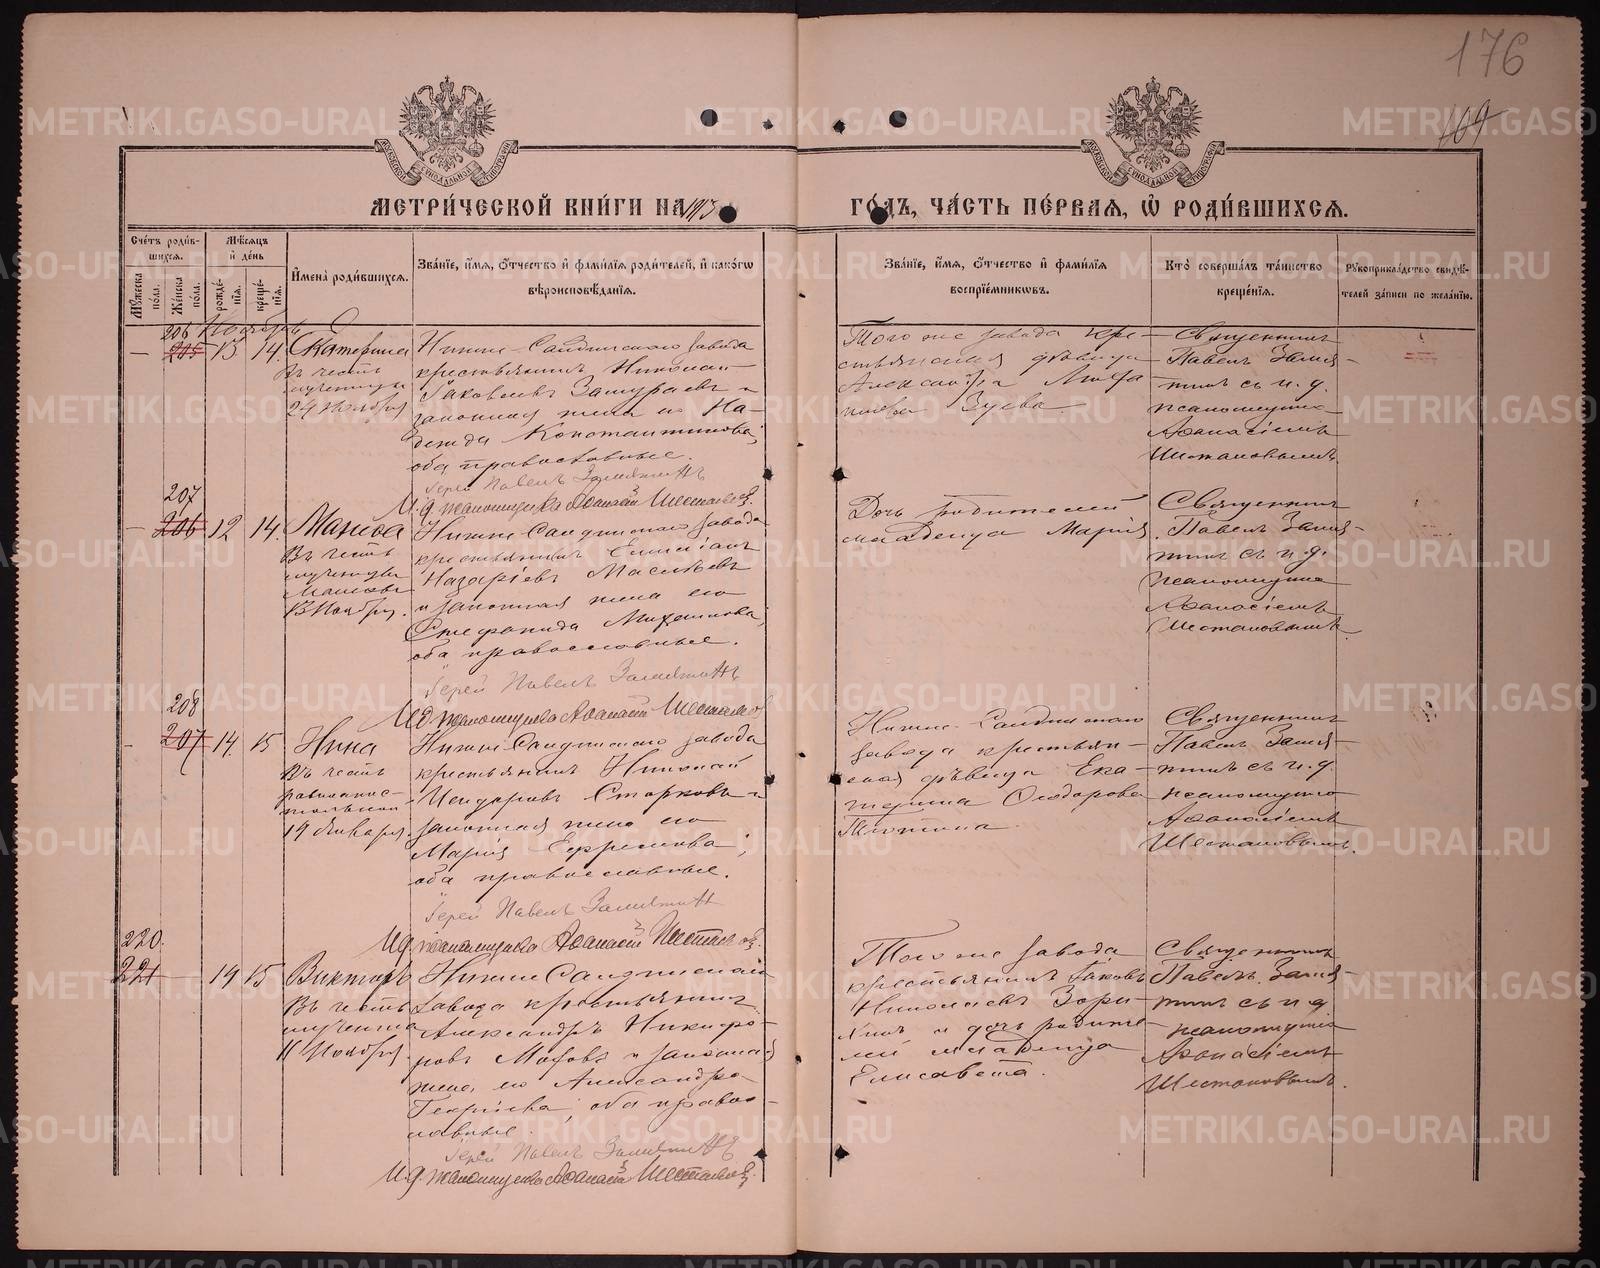 176
169
МЕТРИ́ЧЕСКОЙ КНИ́ГИ НА 1913 ГО́ДЪ, ЧА́СТЬ ПЕ́РВАЯ, Ѡ РОДИ́ВШИХСЯ.
Сче́тъ роди́вшихся.
Му́жеска по́ла.
Же́нска по́ла.
Мѣ́сяцъ и҆ де́нь
рожде́нїя.
креще́нїя.
И҆мена̀ роди́вшихся.
Зва́нїе, и҆́мя, ѻ҆́тчество и҆ фами́лїя роди́телей, и҆ како́гѡ вѣроисповѣ́данїя.
Зва́нїе, и҆́мя, ѻ҆́тчество и҆ фами́лїя воспрїе́мникѡвъ.
Кто̀ соверша́лъ та́инство креще́нїя.
Рꙋкоприкла́дство свидѣ́телей за́писи по жела́нїю.
Ноябрь
206
205
13
14.
Екатерина
Въ честь
мученицы
24 Ноября
Нижне-Салдинскаго завода
крестьянинъ Николай
Іаковлевъ Замураевъ и
законная жена его На-
дежда Константинова,
оба православные.
Іерей Павелъ Замятинъ
И.д. псаломщика Аѳанасій Шестаковъ.
Того же завода кре-
стьянская дѣвица
Александра
Зуева
Священникъ
Павелъ Замя-
тинъ съ и.д.
псаломщика
Аѳанасіемъ
Шестаковымъ.
207
206
12
14.
Манеѳа
Въ честь
мученицы
Манеѳы
13 Ноября.
Нижне-Салдинскаго завода
крестьянинъ
Назаріевъ
и законная жена его
Стефанида Михаилова,
оба православные.
Іерей Павелъ Замятинъ
И.д. псаломщика Аѳанасій Шестаковъ
Дочь родителей
младенца Марія
Священникъ
Павелъ Замя-
тинъ съ и.д.
псаломщика
Аѳанасіемъ
Шестаковымъ
208
207
14.
15
Нина
Въ честь
равноапос-
тольной
14 Января.
Нижне-Салдинскаго завода
крестьянинъ Николай
Исидоровъ Старковъ и
законная жена его
Марія Ефремова,
оба православные.
Іерей Павелъ Замятинъ
И.д. псаломщика Аѳанасій Шестаковъ.
Нижне-Салдинскаго
завода крестьян-
ская дѣвица Ека-
терина Ѳеодорова
Священникъ
Павелъ Замя-
тинъ съ и.д.
псаломщика
Аѳанасіемъ
Шестаковымъ.
220.
221
14
15
Викторъ
Въ честь
мученика
11 Ноября.
Нижне Салдинскаго
завода крестьянинъ
Александръ Никифо-
ровъ и законная
жена его Александра
Георгіева, оба право-
славные
Іерей Павелъ Замятинъ
И.д. псаломщика Аѳанасій Шестаковъ.
Того же завода
крестьянинъ Іаковъ
Николаевъ Зори-
хинъ и дочь родите-
лей младенца
Елисавета.
Священникъ
Павелъ Замя-
тинъ съ и.д.
псаломщика
Аѳанасіемъ
Шестаковымъ.
METRIKI.GASO-URAL.RU